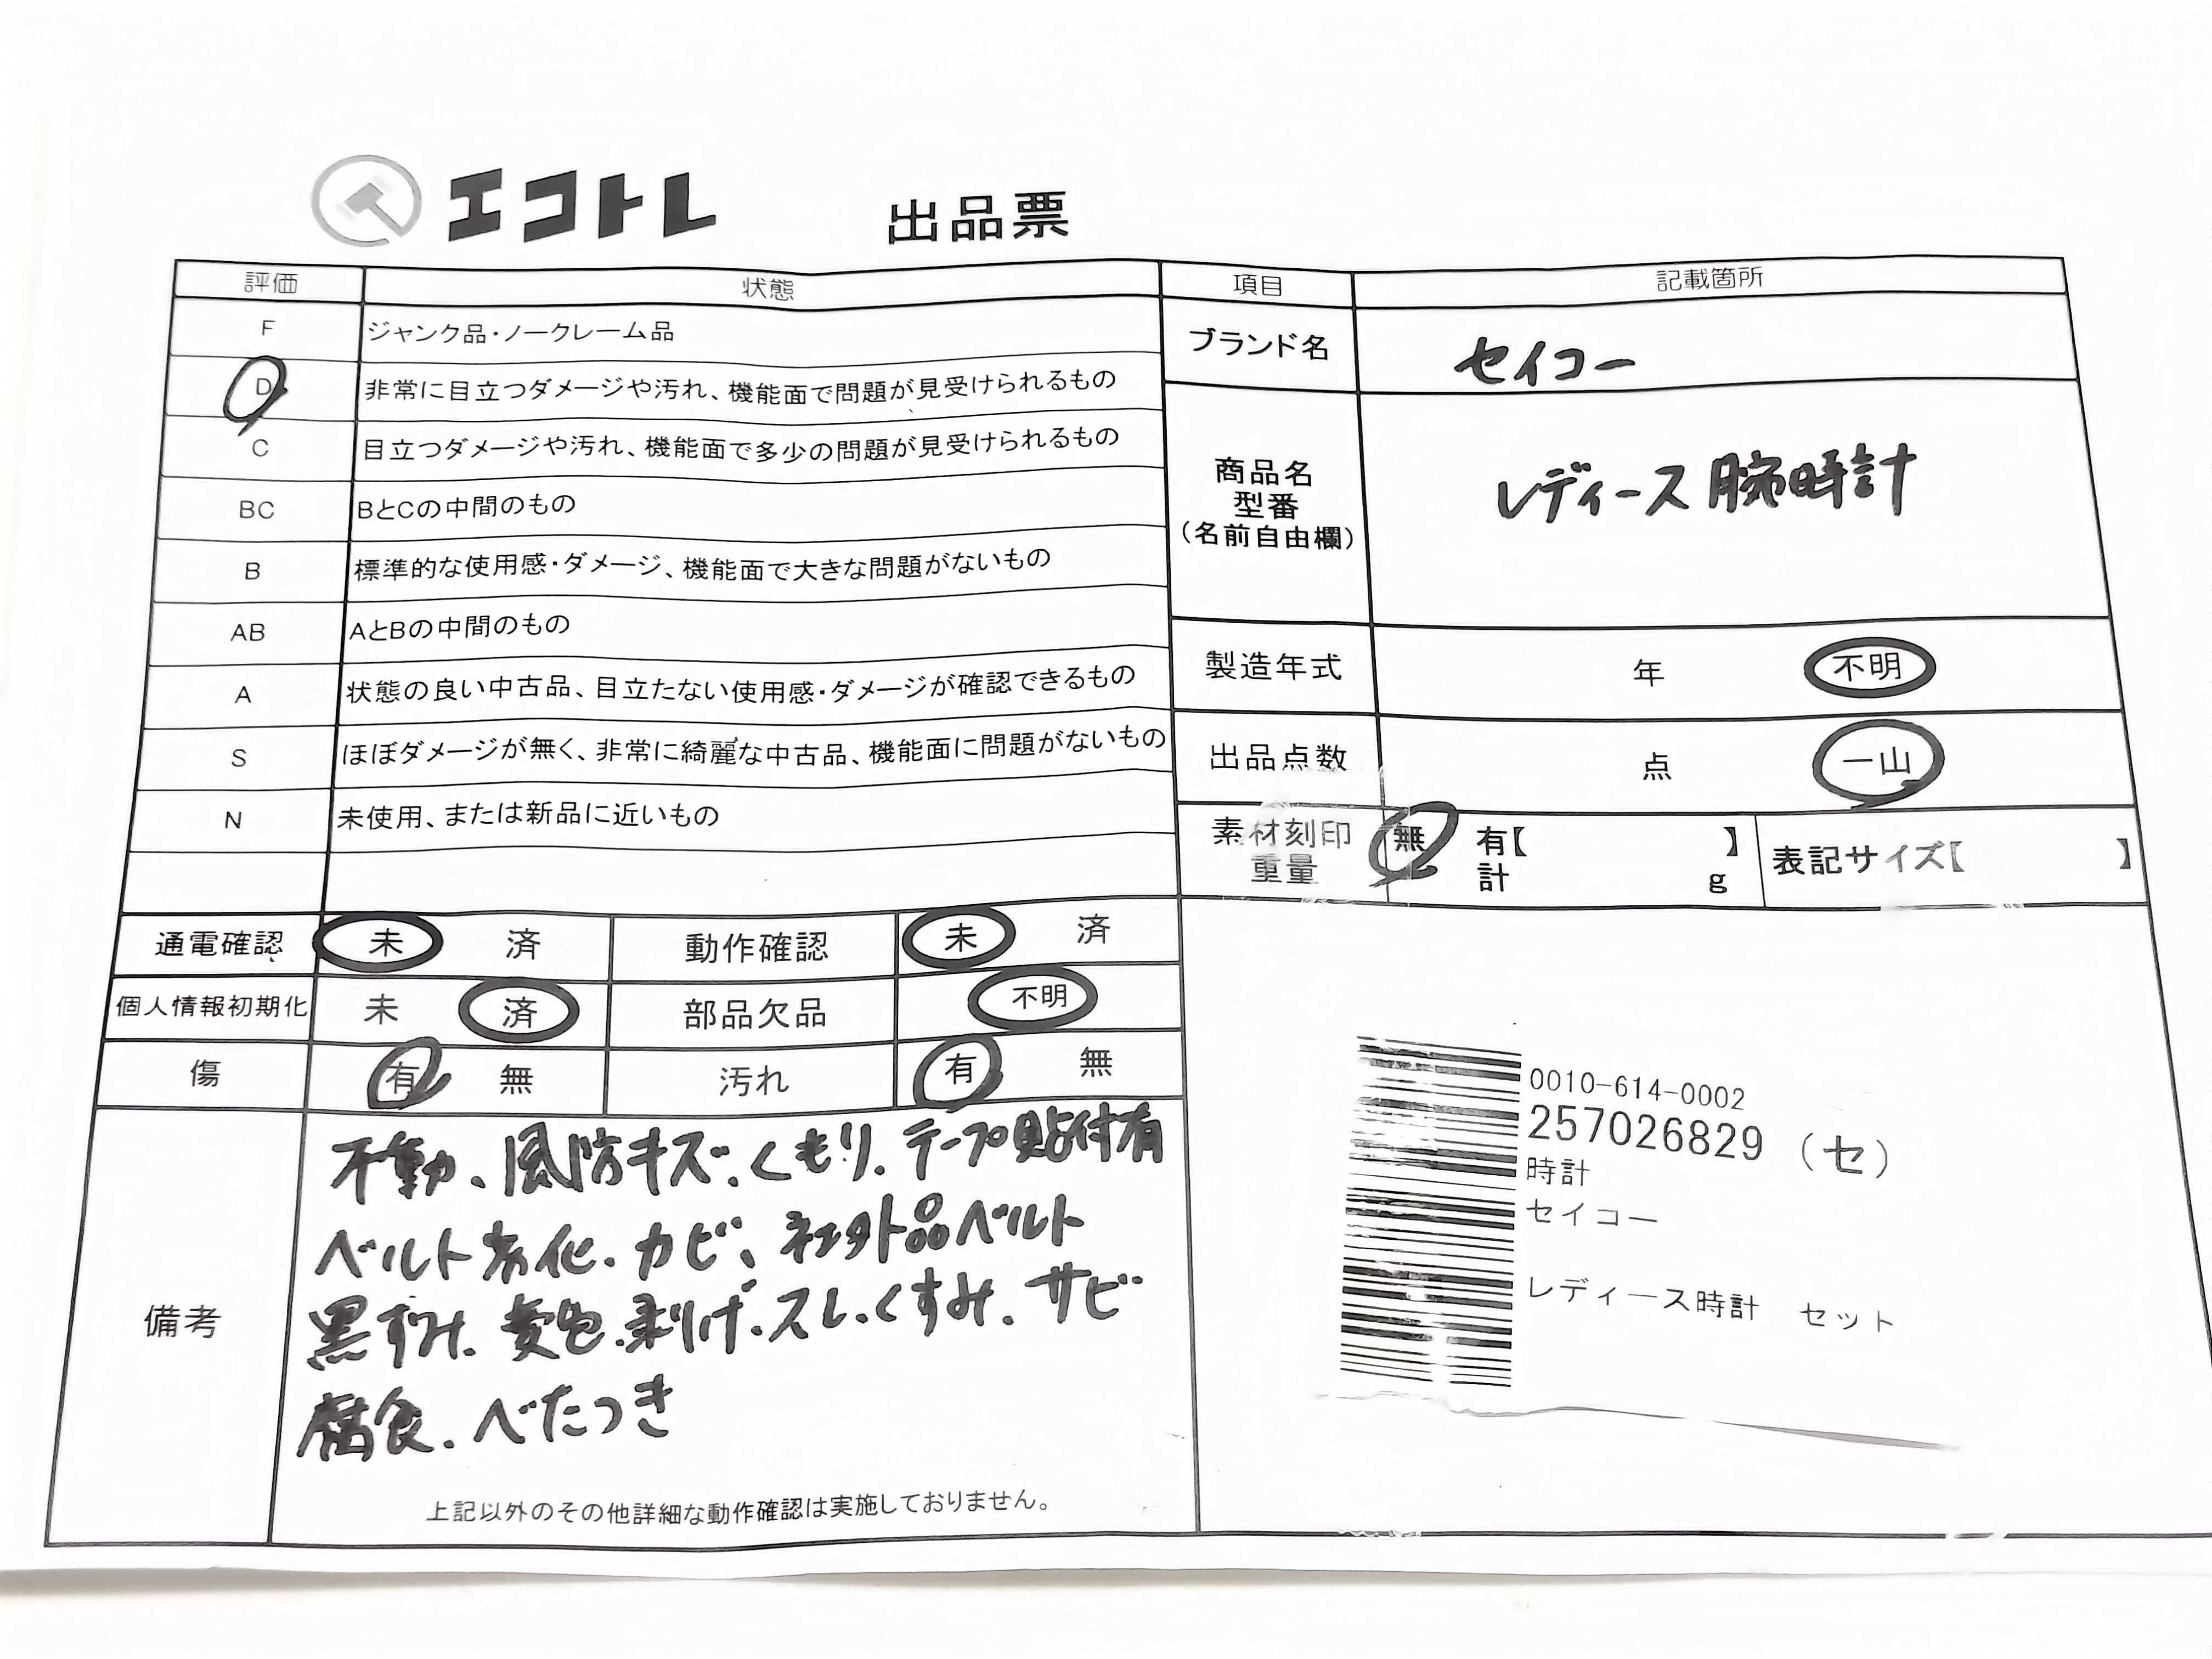 エコトレ 出品票
評価 状態
F ジャンク品・ノークレーム品
D 非常に目立つダメージや汚れ、機能面で問題が見受けられるもの
C 目立つダメージや汚れ、機能面で多少の問題が見受けられるもの
BC BとCの中間のもの
B 標準的な使用感・ダメージ、機能面で大きな問題がないもの
AB AとBの中間のもの
A 状態の良い中古品、目立たない使用感・ダメージが確認できるもの
S ほぼダメージが無く、非常に綺麗な中古品、機能面に問題がないもの
N 未使用、または新品に近いもの
通電確認 未 済 動作確認 未 済
個人情報初期化 未 済 部品欠品 不明
傷 有 無 汚れ 有 無
備考
不動、風防キズ、くもり、テープ貼付有
ベルト劣化、カビ、社外品ベルト
黒ずみ、変色、剥げ、スレ、くすみ、サビ
腐食、べたつき
上記以外のその他詳細な動作確認は実施しておりません。
項目 記載箇所
ブランド名 セイコー
商品名
型番
(名前自由欄)
レディース腕時計
製造年式 年 不明
出品点数 点 一山
素材刻印 無 有【 】
重量 計 g
表記サイズ【 】
0010-614-0002
257026829 (セ)
時計
セイコー
レディース時計 セット